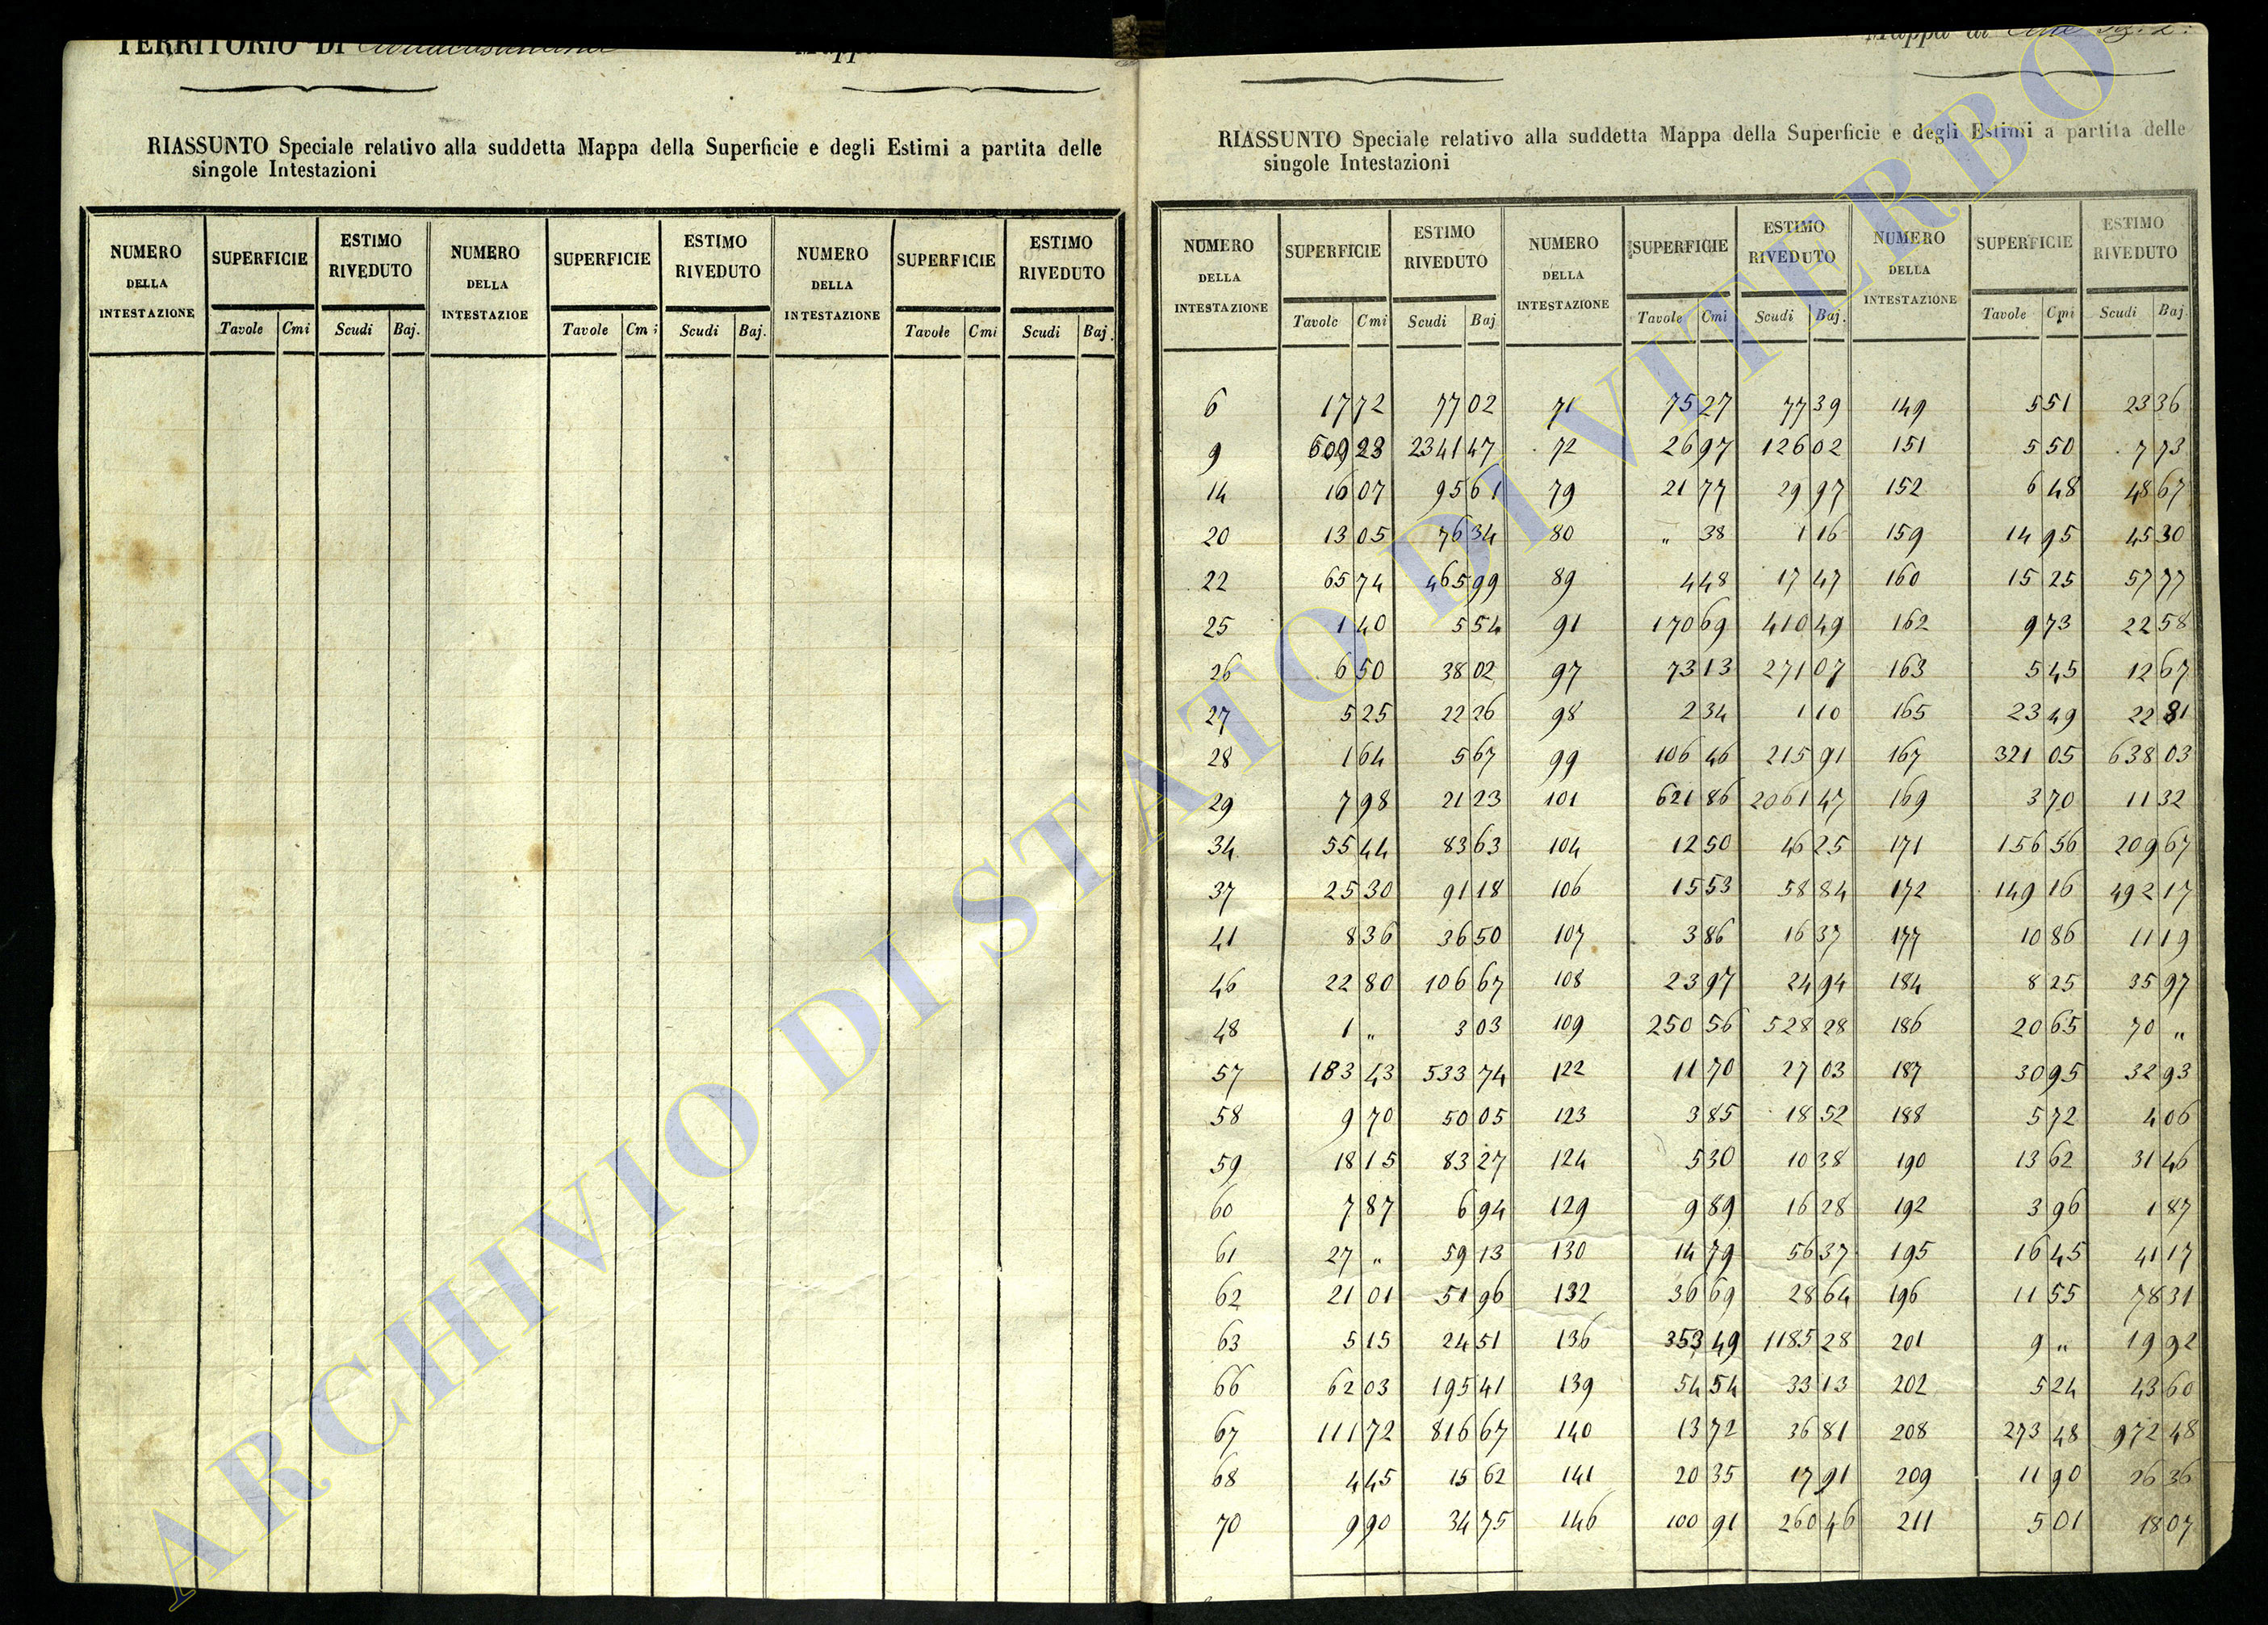 TERRITORIO DI
RIASSUNTO Speciale relativo alla suddetta Mappa della Superficie e degli Estimi a partita delle
singole Intestazioni
NUMERO DELLA INTESTAZIONE SUPERFICIE ESTIMO RIVEDUTO NUMERO DELLA INTESTAZIOE SUPERFICIE ESTIMO RIVEDUTO NUMERO DELLA INTESTAZIONE SUPERFICIE ESTIMO RIVEDUTO
Tavole Cmi Scudi Baj. Tavole Cmi Scudi Baj. Tavole Cmi Scudi Baj.
Mappa di
RIASSUNTO Speciale relativo alla suddetta Mappa della Superficie e degli Estimi a partita delle
singole Intestazioni
NUMERO DELLA INTESTAZIONE SUPERFICIE ESTIMO RIVEDUTO NUMERO DELLA INTESTAZIONE SUPERFICIE ESTIMO RIVEDUTO NUMERO DELLA INTESTAZIONE SUPERFICIE ESTIMO RIVEDUTO
Tavole Cmi Scudi Baj Tavole Cmi Scudi Baj. Tavole Cmi Scudi Baj
6 17 72 77 02 71 75 27 77 39 149 5 51 23 36
9 609 23 2341 47 72 26 97 126 02 151 5 50 7 73
14 16 07 95 61 79 21 77 29 97 152 6 48 48 67
20 13 05 76 34 80 „ 38 1 16 159 14 95 45 30
22 65 74 465 99 89 4 48 17 47 160 15 25 57 77
25 1 40 5 54 91 170 69 410 49 162 9 73 22 58
26 6 50 38 02 97 73 13 271 07 163 5 45 12 67
27 5 25 22 26 98 2 34 1 10 165 23 49 22 81
28 1 64 5 67 99 106 46 215 91 167 321 05 638 03
29 7 98 21 23 101 621 86 2061 47 169 3 70 11 32
34 55 44 83 63 104 12 50 46 25 171 156 56 209 67
37 25 30 91 18 106 15 53 58 84 172 149 16 492 17
41 8 36 36 50 107 3 86 16 37 177 10 86 11 19
46 22 80 106 67 108 23 97 24 94 184 8 25 35 97
48 1 „ 3 03 109 250 56 528 28 186 20 65 70 „
57 183 43 533 74 122 11 70 27 03 187 30 95 32 93
58 9 70 50 05 123 3 85 18 52 188 5 72 4 06
59 18 15 83 27 124 5 30 10 38 190 13 62 31 46
60 7 87 6 94 129 9 89 16 28 192 3 96 1 87
61 27 „ 59 13 130 14 79 56 37 195 16 45 41 17
62 21 01 51 96 132 36 69 28 64 196 11 55 78 31
63 5 15 24 51 136 353 49 1185 28 201 9 „ 19 92
66 62 03 195 41 139 54 54 33 13 202 5 24 43 60
67 111 72 816 67 140 13 72 36 81 208 273 48 972 48
68 4 45 15 62 141 20 35 17 91 209 11 90 26 36
70 9 90 34 75 146 100 91 260 46 211 5 01 18 07
ARCHIVIO DI STATO DI VITERBO